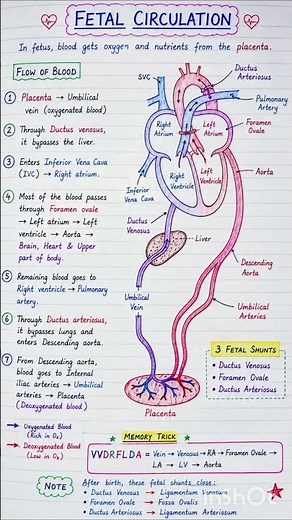 FETAL CIRCULATION
In fetus, blood gets oxygen and nutrients from the placenta.
FLOW OF BLOOD
1 Placenta → Umbilical
vein (oxygenated blood)
2 Through Ductus venosus,
it bypasses the liver.
3 Enters Inferior Vena Cava
(IVC) → Right atrium.
4 Most of the blood passes
through Foramen ovale
→ Left atrium → Left
ventricle → Aorta →
Brain, Heart & Upper
part of body.
5 Remaining blood goes to
Right ventricle → Pulmonary
artery.
6 Through Ductus arteriosus,
it bypasses lungs and
enters Descending aorta.
7 From Descending aorta,
blood goes to Internal
iliac arteries → Umbilical
arteries → Placenta
(Deoxygenated blood)
→ Oxygenated Blood
(Rich in O₂)
→ Deoxygenated Blood
(Low in O₂)
SVC
Ductus
Arteriosus
Pulmonary
Artery
Foramen
Ovale
Right
Atrium
Left
Atrium
Right
Ventricle
Left
Ventricle
Aorta
Inferior
Vena Cava
Ductus
Venosus
Liver
Descending
Aorta
Umbilical
Vein
Umbilical
Arteries
Placenta
3 FETAL SHUNTS
• Ductus Venosus
• Foramen Ovale
• Ductus Arteriosus
MEMORY TRICK
VVDRFLDA = Vein → Venosus → RA → Foramen Ovale →
LA → LV → Aorta
NOTE
After birth, these fetal shunts close :
• Ductus Venosus → Ligamentum Venosum
• Foramen Ovale → Fossa Ovalis
• Ductus Arteriosus → Ligamentum Arteriosum